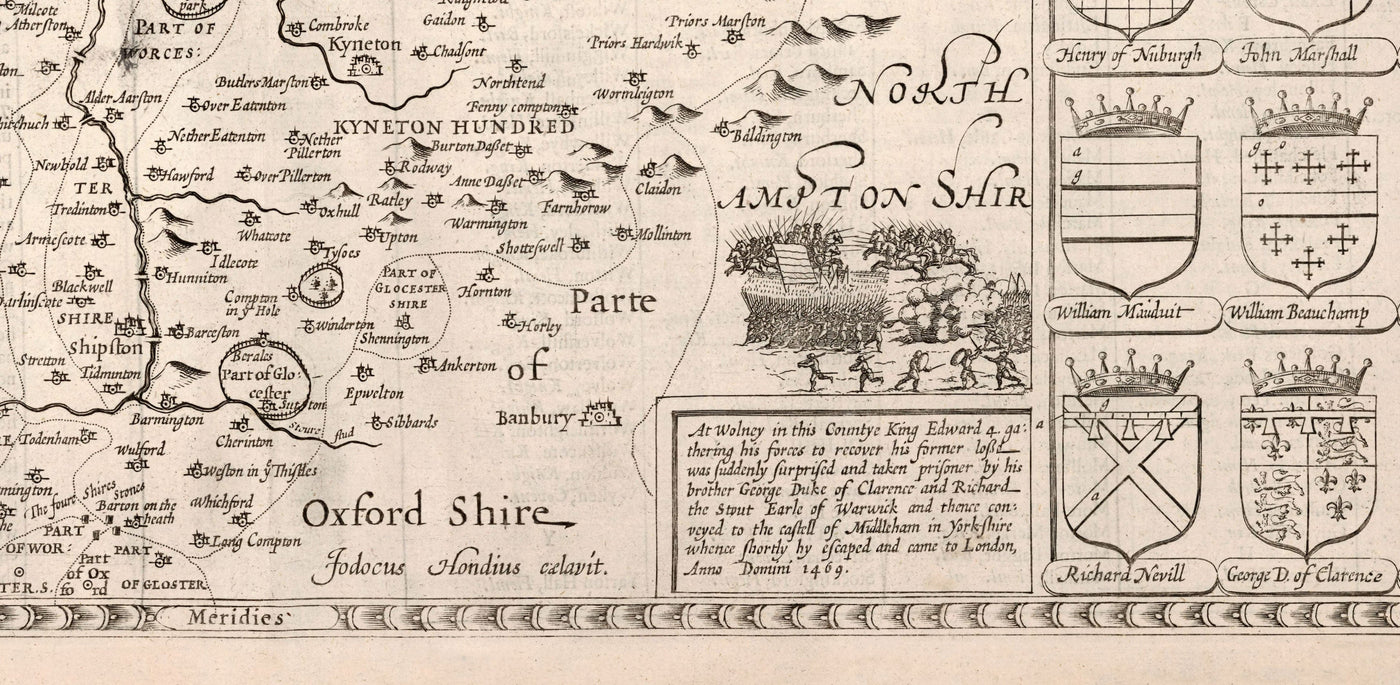 Milcote
Atherston
park
PART OF
WORCES:
Combroke
Kyneton
Gaidon
Chadsont
Priors Marston
Priors Hardwik
Butlers Marston
Northtend
Wormleigton
Alder Aarston
Over Eatenton
Fenny compton
NORTH
KYNETON HUNDRED
Nether Eatenton
Nether
Pillerton
Burton Dasset
Baldington
Newbold
Hawford
Over Pillerton
Rodway
Anne Dasset
Claidon
AMPTON SHIR
TER
Tredinton
Oxhull
Ratley
Farnhorow
Warmington
Armescote
Whatcote
Upton
Shotteswell
Mollinton
Idlecote
Tysoes
Hunniton
PART OF
GLOCESTER
SHIRE
Hornton
Parte
Blackwell
Compton
in yͤ Hole
SHIRE
Barceston
Winderton
Shennington
Horley
Shipston
Stretton
Tidminton
Berales
Part of Glo:
cester
Sutton
Ankerton
of
Epwelton
Barmington
Stoure flud
Sibbards
Banbury
Todenham
Cherinton
Wulford
Weston in yͤ Thistles
The foure Shires Stones
Barton on the
heath
Whichford
Long Compton
Oxford Shire
PART
OF WOR:
PART
OF GLOSTER
Part
of Ox
fo rd
TER.S.
Jodocus Hondius cælavit.
Meridies
At Wolney in this Countye King Edward 4. ga:
thering his forces to recover his former losse
was suddenly surprised and taken prisoner by his
brother George Duke of Clarence and Richard
the Stout Earle of Warwick and thence con:
veyed to the castell of Middleham in Yorkshire
whence shortly hy escaped and came to London,
Anno Domini 1469.
Henry of Nuburgh
John Marshall
a
g
g o
o
William Mauduit
William Beauchamp
g
a
a
Richard Nevill
George D. of Clarence